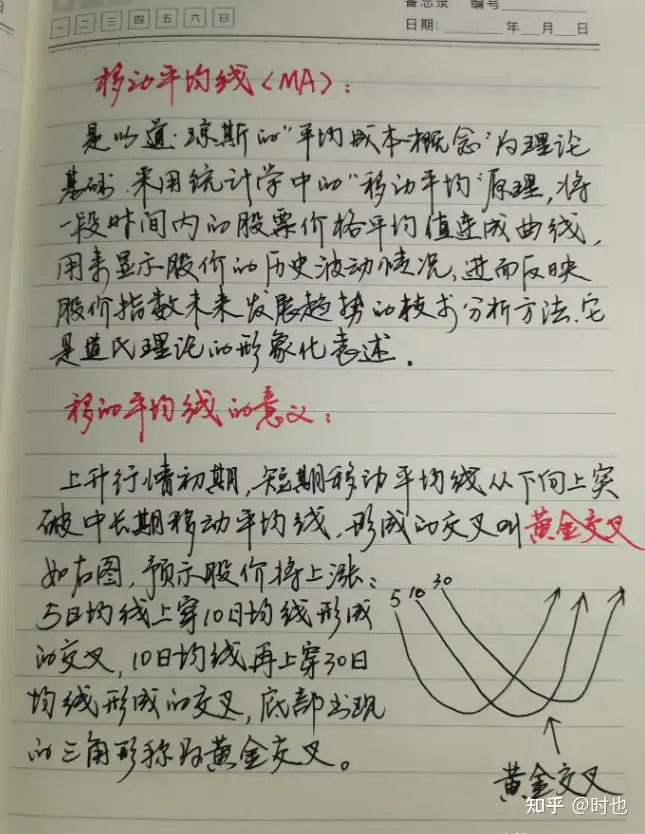 备忘录 编号
一 二 三 四 五 六 日
日期: 年 月 日
移动平均线(MA):
是以道·琼斯的“平均成本概念”为理论
基础,采用统计学中的“移动平均”原理,将
一段时间内的股票价格平均值连成曲线,
用来显示股价的历史波动情况,进而反映
股价指数未来发展趋势的技术分析方法.它
是道氏理论的形象化表述.
移动平均线的意义:
上升行情初期,短期移动平均线从下向上突
破中长期移动平均线,形成的交叉叫黄金交叉
如右图,预示股价将上涨:
5日均线上穿10日均线形成
的交叉,10日均线再上穿30日
均线形成的交叉,底部出现
的三角形称为黄金交叉。
5 10 30
黄金交叉
知乎 @时也